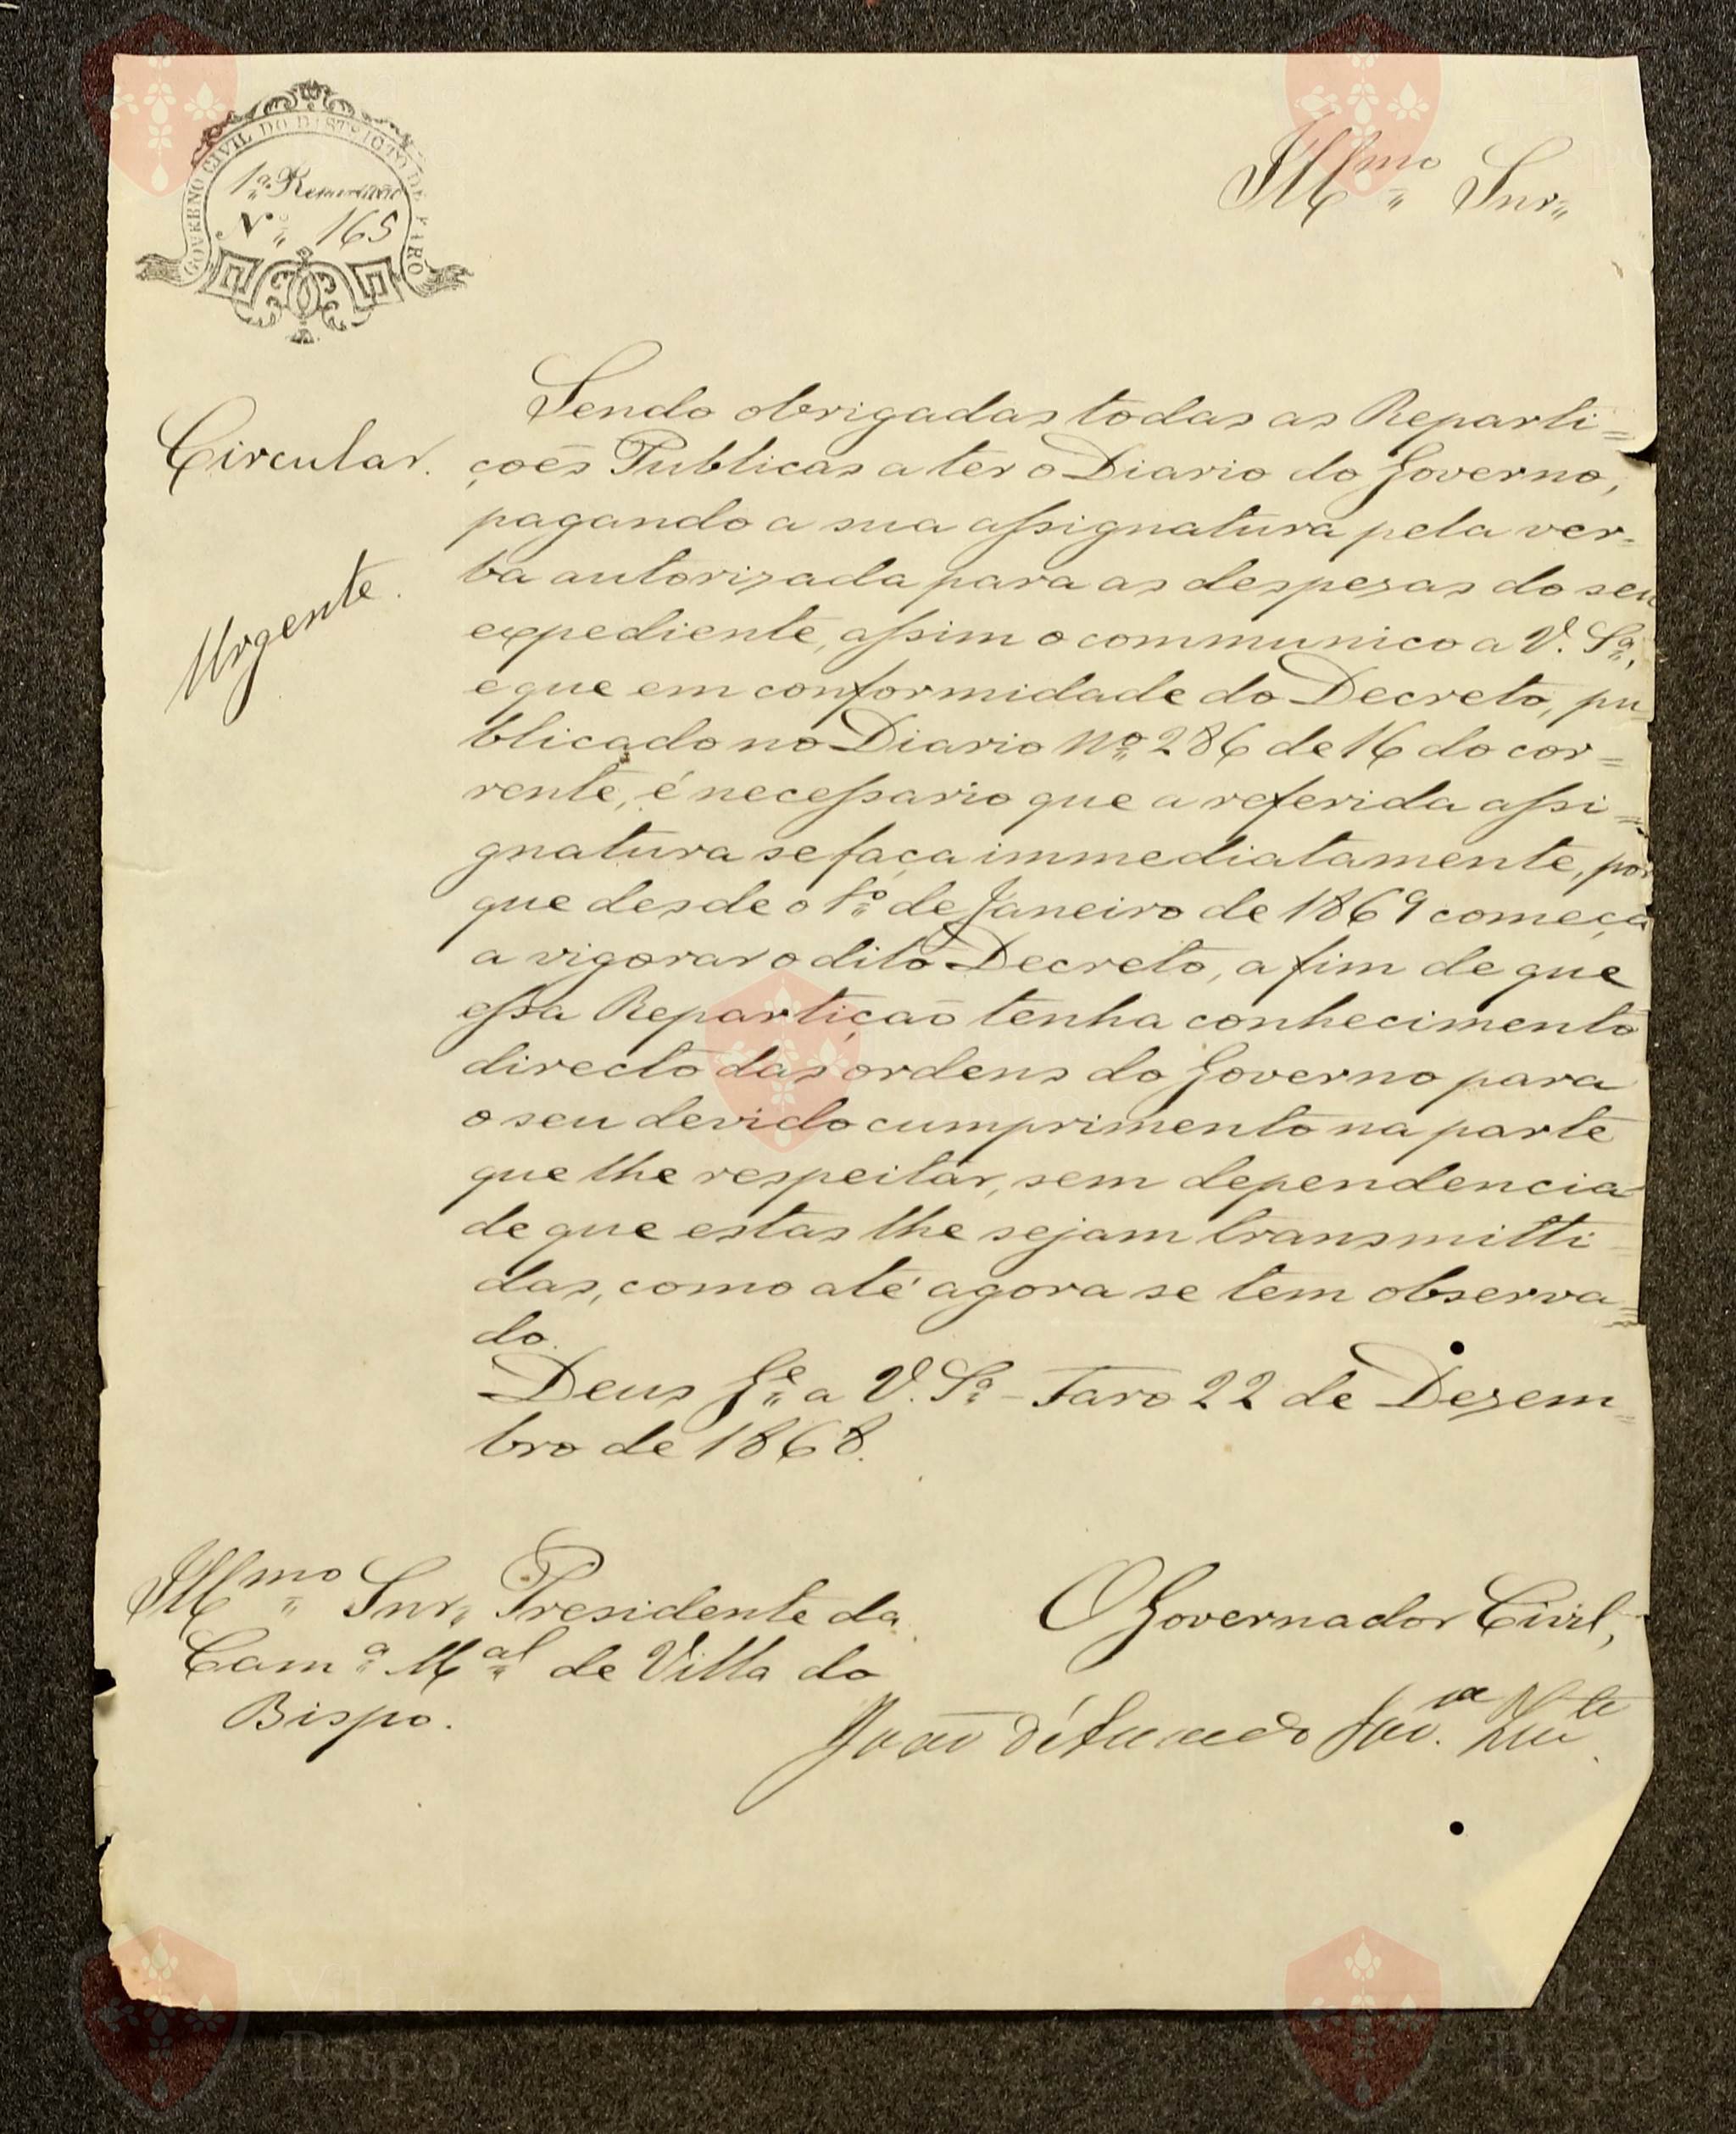 GOVERNO CIVIL DO DISTRICTO DE FARO
1ª Repartição
Nº 165
Illmo Snr
Circular.
Urgente.
Sendo obrigadas todas as Reparti=
çoēs Publicas a ter o Diario do Governo,
pagando a sua assignatura pela ver-
ba autorizada para as despezas do seu
expediente, assim o communico a V. Sª,
e que em conformidade do Decreto, pu
blicado no Diario Nº 286 de 16 do cor=
rente, é necessario que a referida assi=
gnatura se faça immediatamente, por
que desde o 1º de Janeiro de 1869 começa
a vigorar o dito Decreto, a fim de que
essa Repartiçaō tenha conhecimento
directo das ordens do Governo para
o seu devido cumprimento na parte
que lhe respeitar, sem dependencia
de que estas lhe sejam transmitti=
das, como até agora se tem observa=
do.
Deus Ge a V. Sª - Faro 22 de Dezem=
bro de 1868.
Illmo Snr Presidente da
Camª Mal de Villa do
Bispo.
O Governador Civil,
João
Vila do
Bispo
Vila do
Bispo